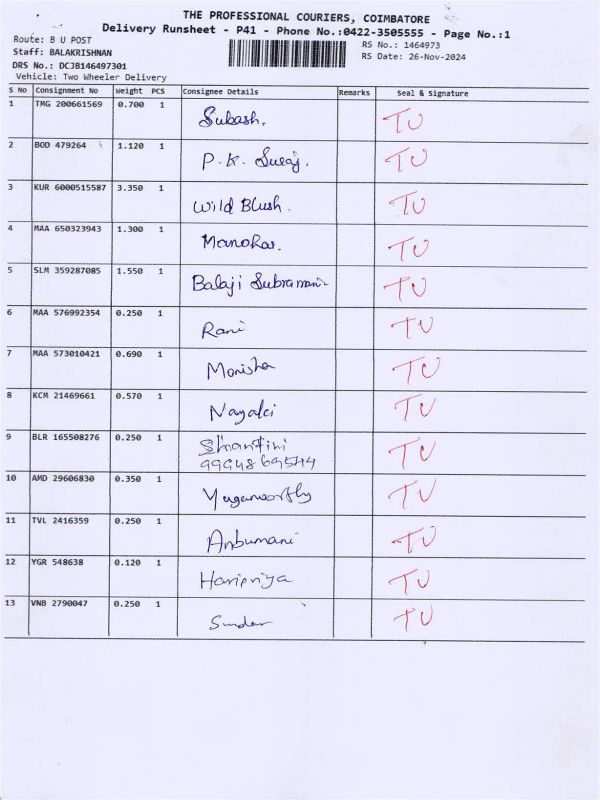 THE PROFESSIONAL COURIERS, COIMBATORE
Delivery Runsheet - P41 - Phone No.:0422-3505555 - Page No.:1
Route: B U POST
RS No.: 1464973
Staff: BALAKRISHNAN
RS Date: 26-Nov-2024
DRS No.: DCJB146497301
Vehicle: Two Wheeler Delivery
S No Consignment No Weight PCS Consignee Details Remarks Seal & Signature
1 TMG 200661569 0.700 1 Subash. TU
2 BOD 479264 1.120 1 P. K. Suraj. TU
3 KUR 6000515587 3.350 1 Wild Blush. TU
4 MAA 650323943 1.300 1 Manohar. TU
5 SLM 359287085 1.550 1 Balaji Subramani TU
6 MAA 576992354 0.250 1 Rani TU
7 MAA 573010421 0.690 1 Monisha TU
8 KCM 21469661 0.570 1 TU
9 BLR 165508276 0.250 1 Shantini TU
9994869544
10 AMD 29606830 0.350 1 TU
11 TVL 2416359 0.250 1 Anbumani TU
12 YGR 548638 0.120 1 Haripriya TU
13 VNB 2790047 0.250 1 Sundar TU